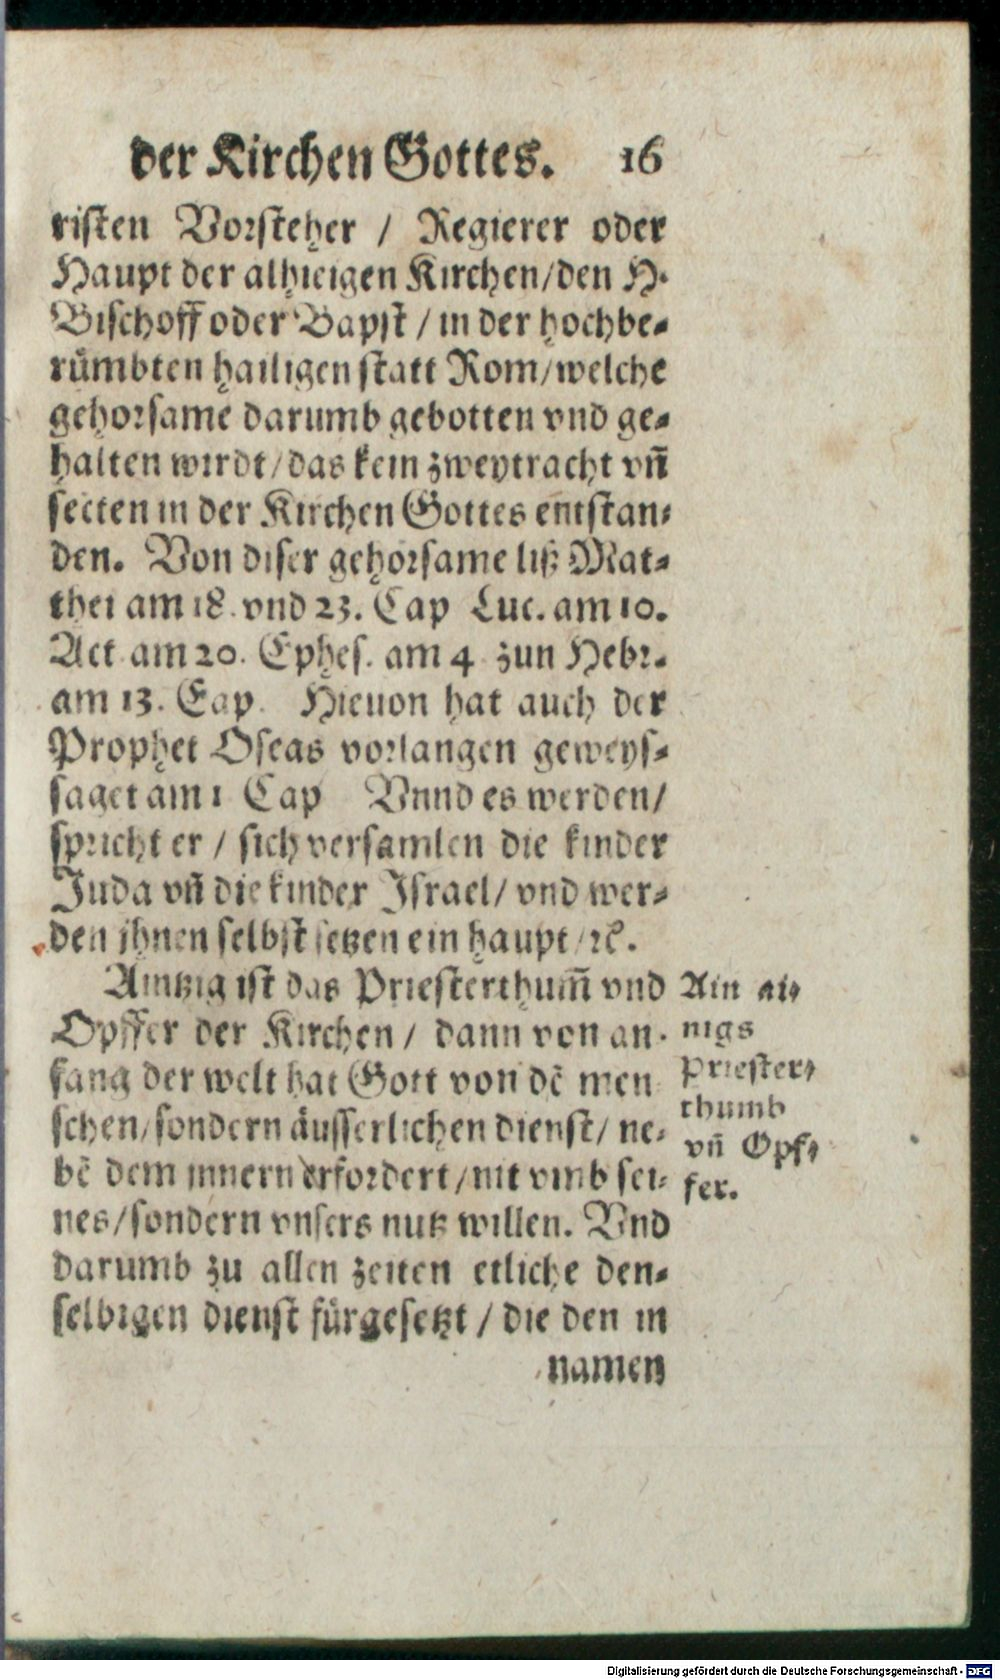 der Kirchen Gottes. 16
risten Vorsteher / Regierer oder
Haupt der alhieigen Kirchen/den H.
Bischoff oder Bapst / in der hochbe-
rümbten hailigen statt Rom/welche
gehorsame darumb gebotten vnd ge-
halten wirdt/das kein zweytracht vñ
secten in der Kirchen Gottes entstan-
den. Von diser gehorsame liß Mat-
thei am 18. vnd 23. Cap Luc. am 10.
Act. am 20. Ephes. am 4 zun Hebr.
am 13. Cap. Hieuon hat auch der
Prophet Oseas vorlangen geweys-
saget am 1 Cap Vnnd es werden/
spricht er / sich versamlen die kinder
Juda vñ die kinder Israel/ vnd wer-
den ihnen selbst setzen ein haupt / ꝛc.
Aintzig ist das Priesterthum̃ vnd
Opffer der Kirchen / dann von an-
fang der welt hat Gott von dẽ men
schen/sondern äusserlichen dienst/ ne-
bẽ dem innern erfordert/nit vmb sei-
nes/sondern vnsers nutz willen. Vnd
darumb zu allen zeiten etliche den-
selbigen dienst fürgesetzt / die den in
namen
Ain ai-
nigs
Priester-
thumb
vñ Opf-
fer.
Digitalisierung gefördert durch die Deutsche Forschungsgemeinschaft - DFG